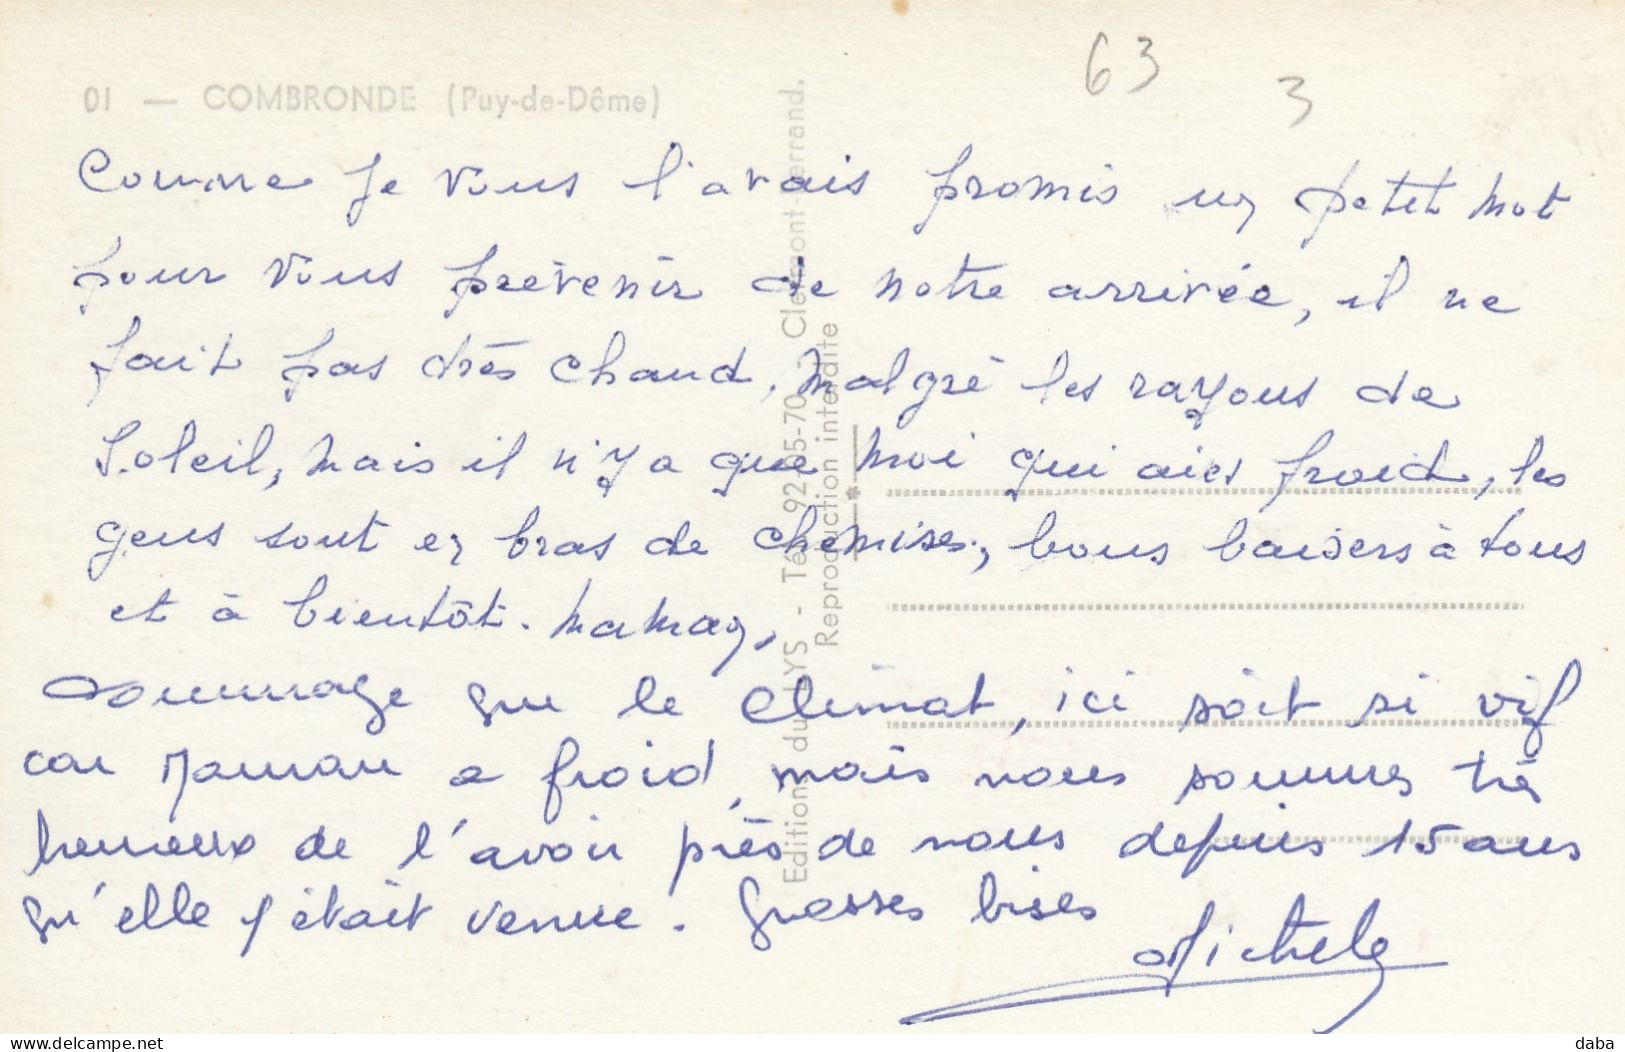 63
3
01 — COMBRONDE (Puy-de-Dôme)
Comme je vous l'avais promis un petit mot
pour vous prévenir de notre arrivée, il ne
fait pas très chaud, malgré les rayons de
Soleil, mais il n'y a que moi qui aies froid, les
gens sont en bras de chemises, bons baisers à tous
et à bientôt. Maman,
dommage que le climat, ici soit si vif
car Maman a froid, mais nous sommes très
heureux de l'avoir près de nous depuis 15 ans
qu'elle y était venue. Grosses bises
Michele
Editions du LYS - Tél. 92-65-70 - Clermont-Ferrand.
Reproduction interdite
www.delcampe.net
daba